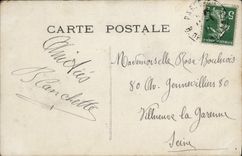 CARTE POSTALE
Amitiés
Blanchette
Mademoiselle Rose
80 Av. Gennevilliers 80
Villeneuve la Garenne
Seine
5